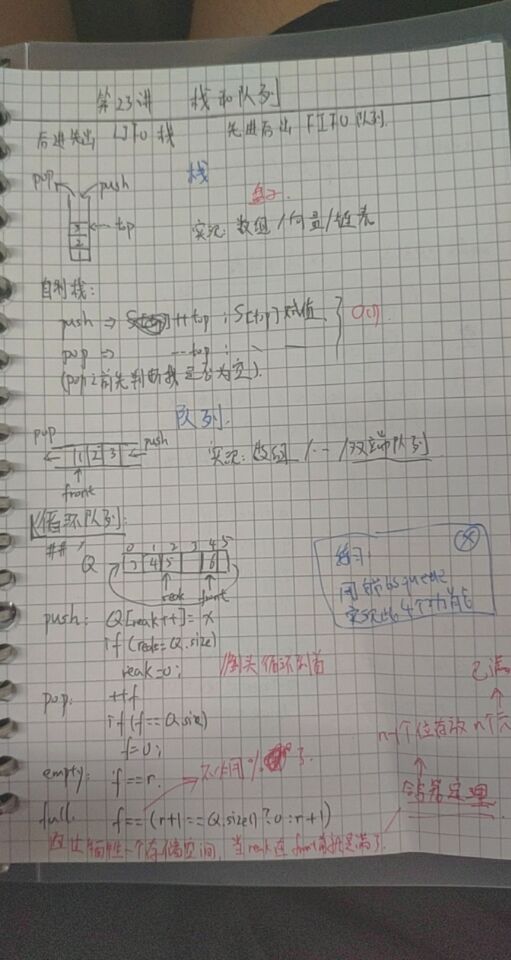 第23讲 栈和队列
后进先出 LIFO 栈 先进后出 FIFO 队列.
栈
pop push
top
3
2
1
实现: 数组/向量/链表
自制栈:
push => ++top ; S[top] 赋值
pop => --top ;
O(1)
(pop之前先判断栈是否为空).
队列.
pop push
1 2 3
front
实现: 数组 /--/双端队列
循环队列:
##
0 1 2 3 4 5
Q 4 5 6
reak front
push: Q[reak++]=x
if (reak=Q.size)
reak=0; 倒头循环到首
练习
用 queue
实现 4个功能
pop: ++f
if (f==Q.size)
f=0;
empty: f==r. 不用% 了
full. f==(r+1==Q.size()?0:r+1)
已满
n-1个位存放n个元
鸽巢定理
牺牲一个存储空间, 当reak front 就是满了.